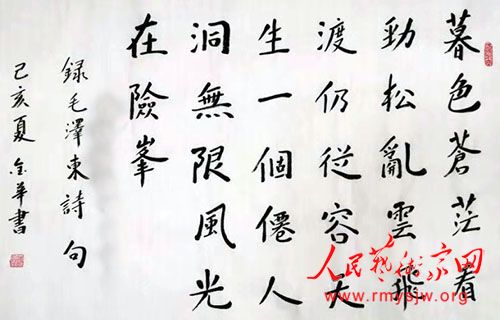 暮色蒼茫看
勁松亂雲飛
渡仍従容天
生一個僊人
洞無限風光
在險峯
録毛澤東詩句
己亥夏 金華書
人民藝術家网
www.rmysjw.org